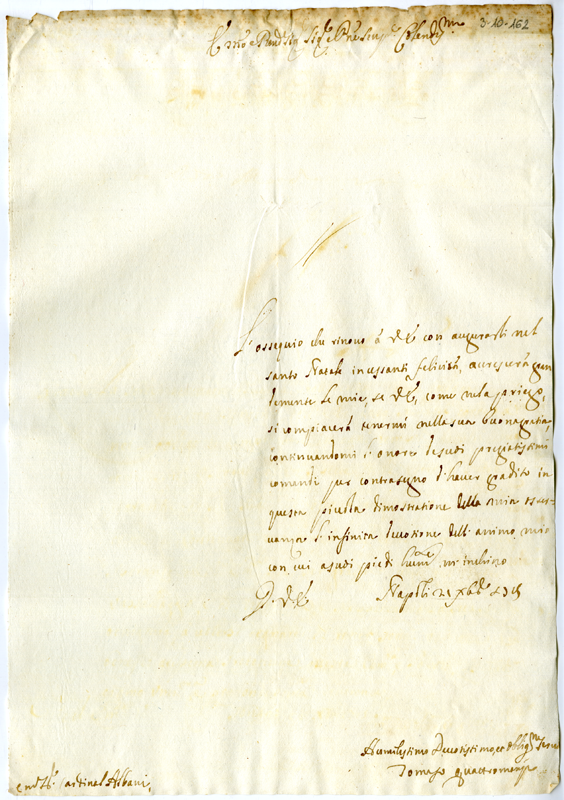 3-10-162
E.mo e Rev.mo Sig.re e P.ne Singo.mo Colend.mo
L'ossequio che rinovo à V.E. con augurarli nel
santo Natale incessanti felicità, accrescerà gran
temente le mie, se V.E., come nela priego,
si compiacerà tenermi nella sua buonagratia
continuandomi l'onore de suoi pregiatissimi
comandi per contrasegno d'haver gradito in
questa piccola dimostratione della mia osser-
vanza l'infinita devotione dell'animo mio
con cui a suoi piedi hum.te m'inchino
D. V.E. Napoli 21 Xbre
Humilissimo Devotissimo, et Oblig.mo Serv.
Tomaso Quattromani
Cardinal Albani,